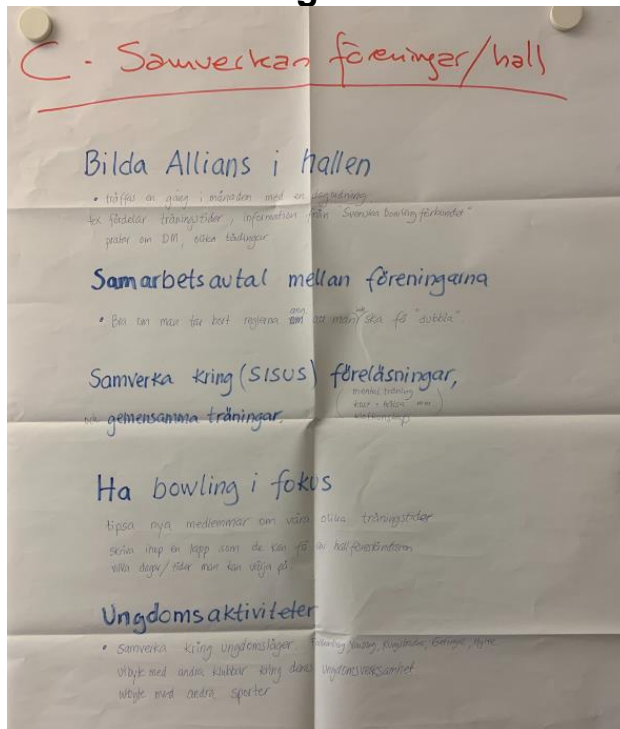 C - Samverkan föreningar/hall
Bilda Allians i hallen
• träffas en gång i månaden med en dagordning
tex fördelar träningstider, information från "Svenska bowling förbundet"
pratar om DM, olika tävlingar
Samarbetsavtal mellan föreningarna
• Bra om man tar bort reglerna att man ska få "dubbla"
Samverka kring (SISUS) föreläsningar,
mental träning
kost + hälsa
och gemensamma träningar.
Ha bowling i fokus
tipsa nya medlemmar om våra olika träningstider
skriva ihop en lapp som de kan få av hallföreståndaren
olika dagar/tider man kan välja på.
Ungdomsaktiviteter
• samverka kring ungdomsläger, Falkenberg, Varberg, Kungsbacka,
utbyte med andra klubbar kring deras ungdomsverksamhet
utbyte med andra sporter